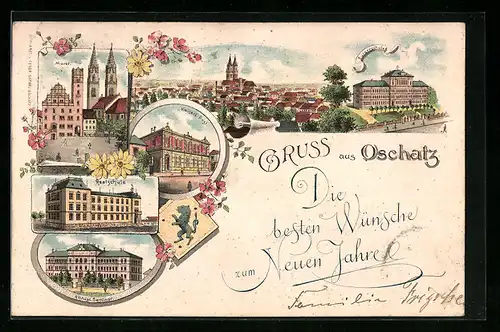 Markt
Realschule
Königl. Seminar
GRUSS aus Oschatz
Die
besten Wünsche
zum Neuen Jahre
Familie